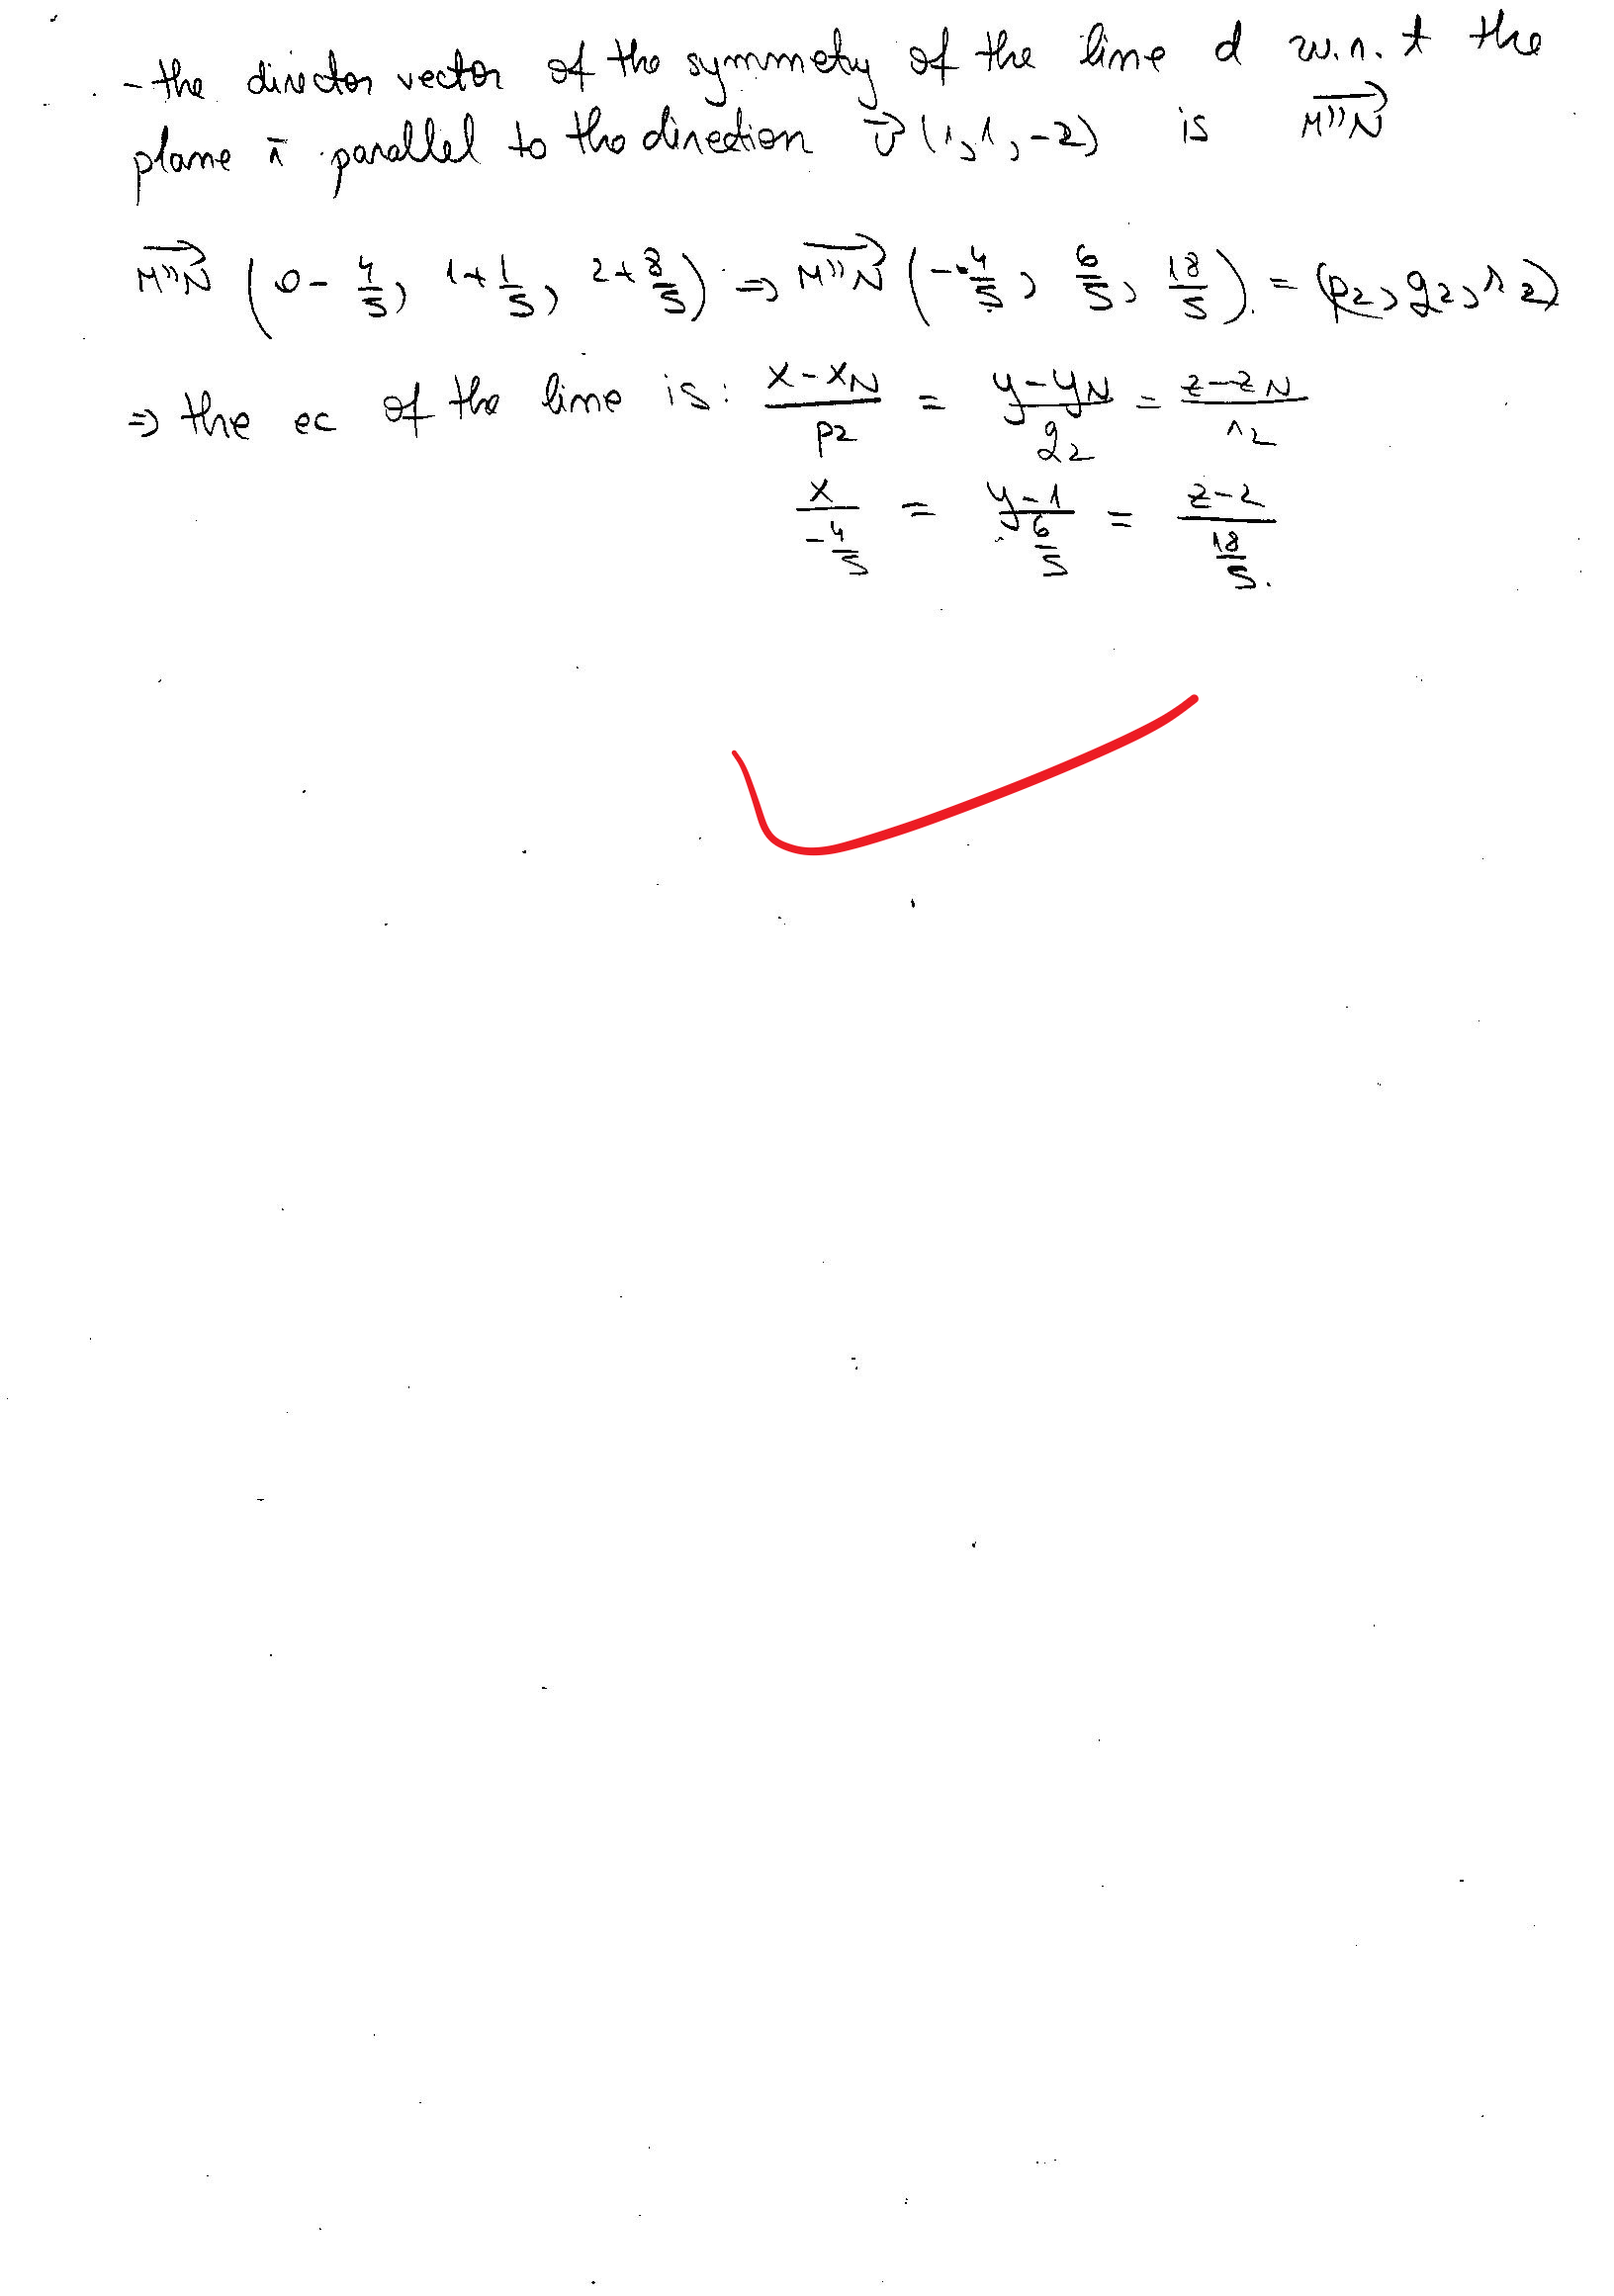 - the director vector of the symmety of the line d w.r.t the
plane π parallel to the direction v⃗ (1,1,-2) is M''N
M''N (0 - 4/5, 1 + 1/5, 2 + 8/5) ⇒ M''N (- 4/5, 6/5, 18/5) = (p2, q2, r2)
⇒ the ec of the line is: x-xN / p2 = y-yN / q2 = z-zN / r2
x / -4/5 = y-1 / 6/5 = z-2 / 18/5.